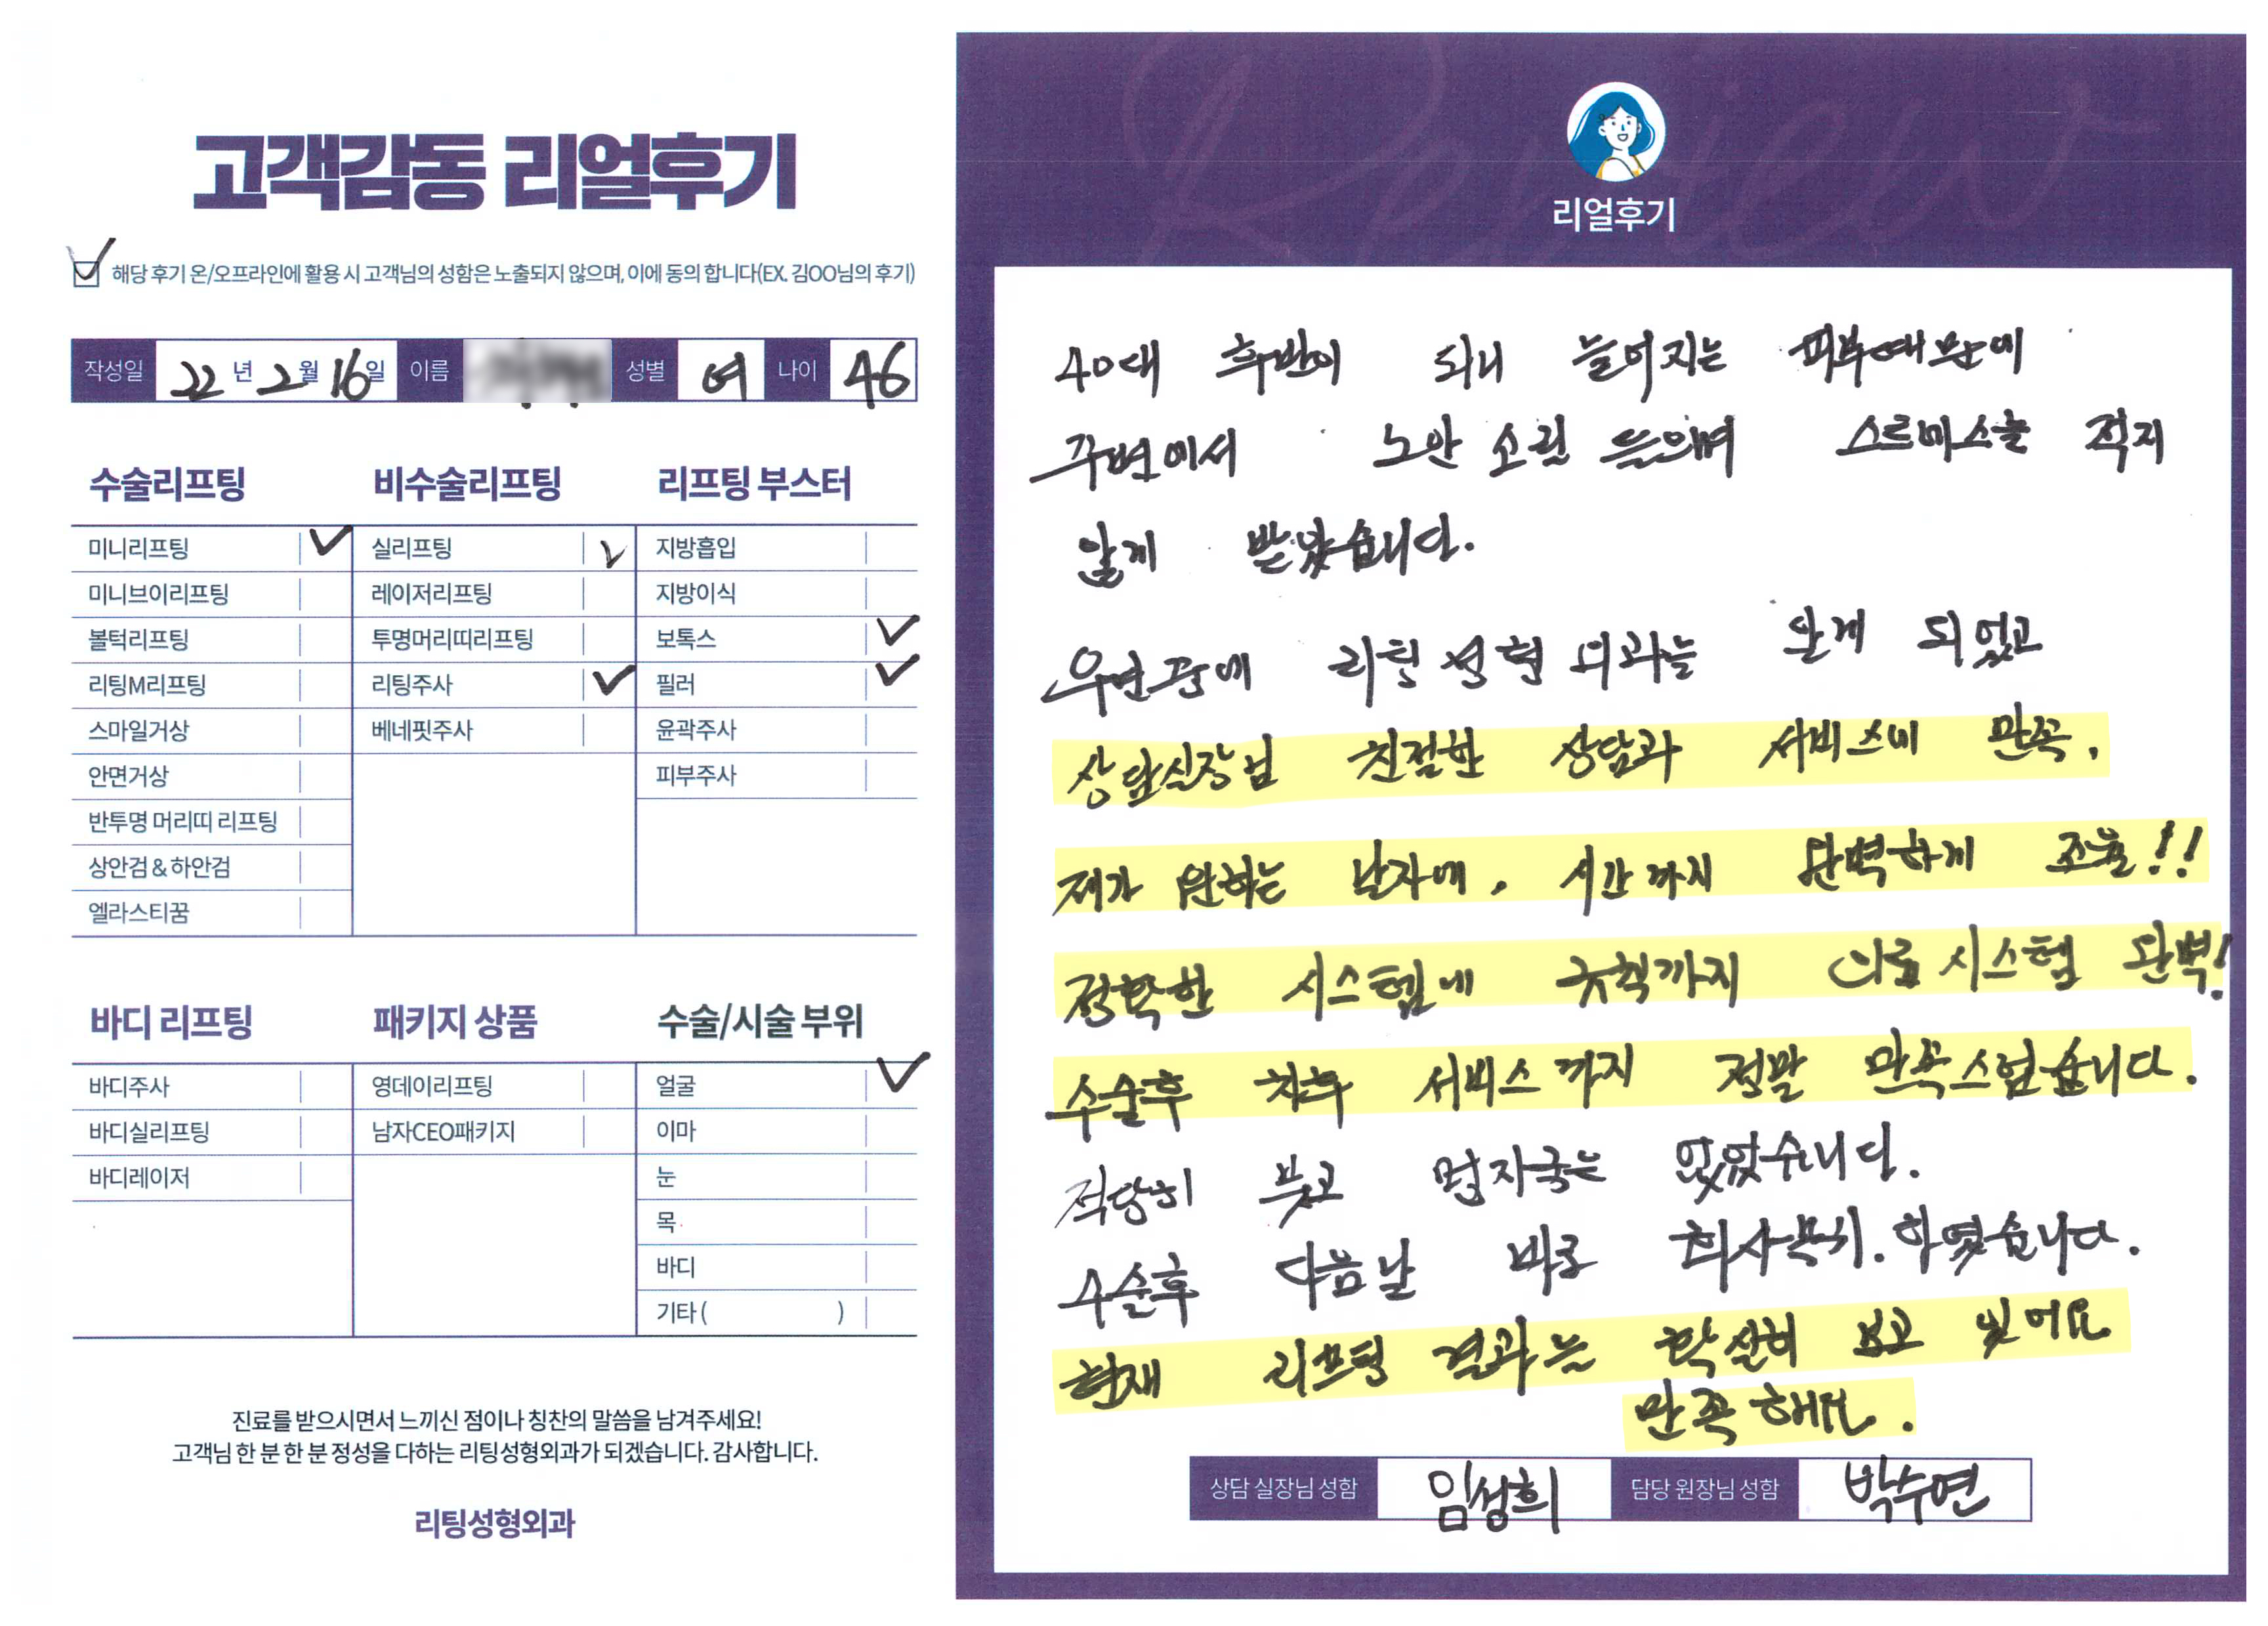 고객감동 리얼후기
해당 후기 온/오프라인에 활용 시 고객님의 성함은 노출되지 않으며, 이에 동의 합니다(EX. 김OO님의 후기)
작성일 22 년 2 월 16 일 이름 성별 여 나이 46
수술리프팅
미니리프팅
미니브이리프팅
볼턱리프팅
리팅M리프팅
스마일거상
안면거상
반투명 머리띠 리프팅
상안검 & 하안검
엘라스티꿈
비수술리프팅
실리프팅
레이저리프팅
투명머리띠리프팅
리팅주사
베네핏주사
리프팅 부스터
지방흡입
지방이식
보톡스
필러
윤곽주사
피부주사
바디 리프팅
바디주사
바디실리프팅
바디레이저
패키지 상품
영데이리프팅
남자CEO패키지
수술/시술 부위
얼굴
이마
눈
목
바디
기타 ( )
진료를 받으시면서 느끼신 점이나 칭찬의 말씀을 남겨주세요!
고객님 한 분 한 분 정성을 다하는 리팅성형외과가 되겠습니다. 감사합니다.
리팅성형외과
Review
리얼후기
40대 후반이 되니 늘어지는 피부때문에
주변에서 노안 소릴 들으며 스르메스를 적지
않게 받았습니다.
우연중에 리팅성형외과를 알게 되었고
상담실장님 친절한 상담과 서비스에 만족,
제가 원하는 날자에, 시간까지 완벽하게 조율!!
정확한 시스템에 규칙까지 의료시스템 완벽!
수술후 차후 서비스까지 정말 만족스럽습니다.
적당히 붓고 멍자국은 있었습니다.
수술후 다음날 바로 회사복귀. 하였습니다.
현재 리프팅 결과는 확실히 보고 있어요
만족해요.
상담 실장님 성함 임성희 담당 원장님 성함 박수연